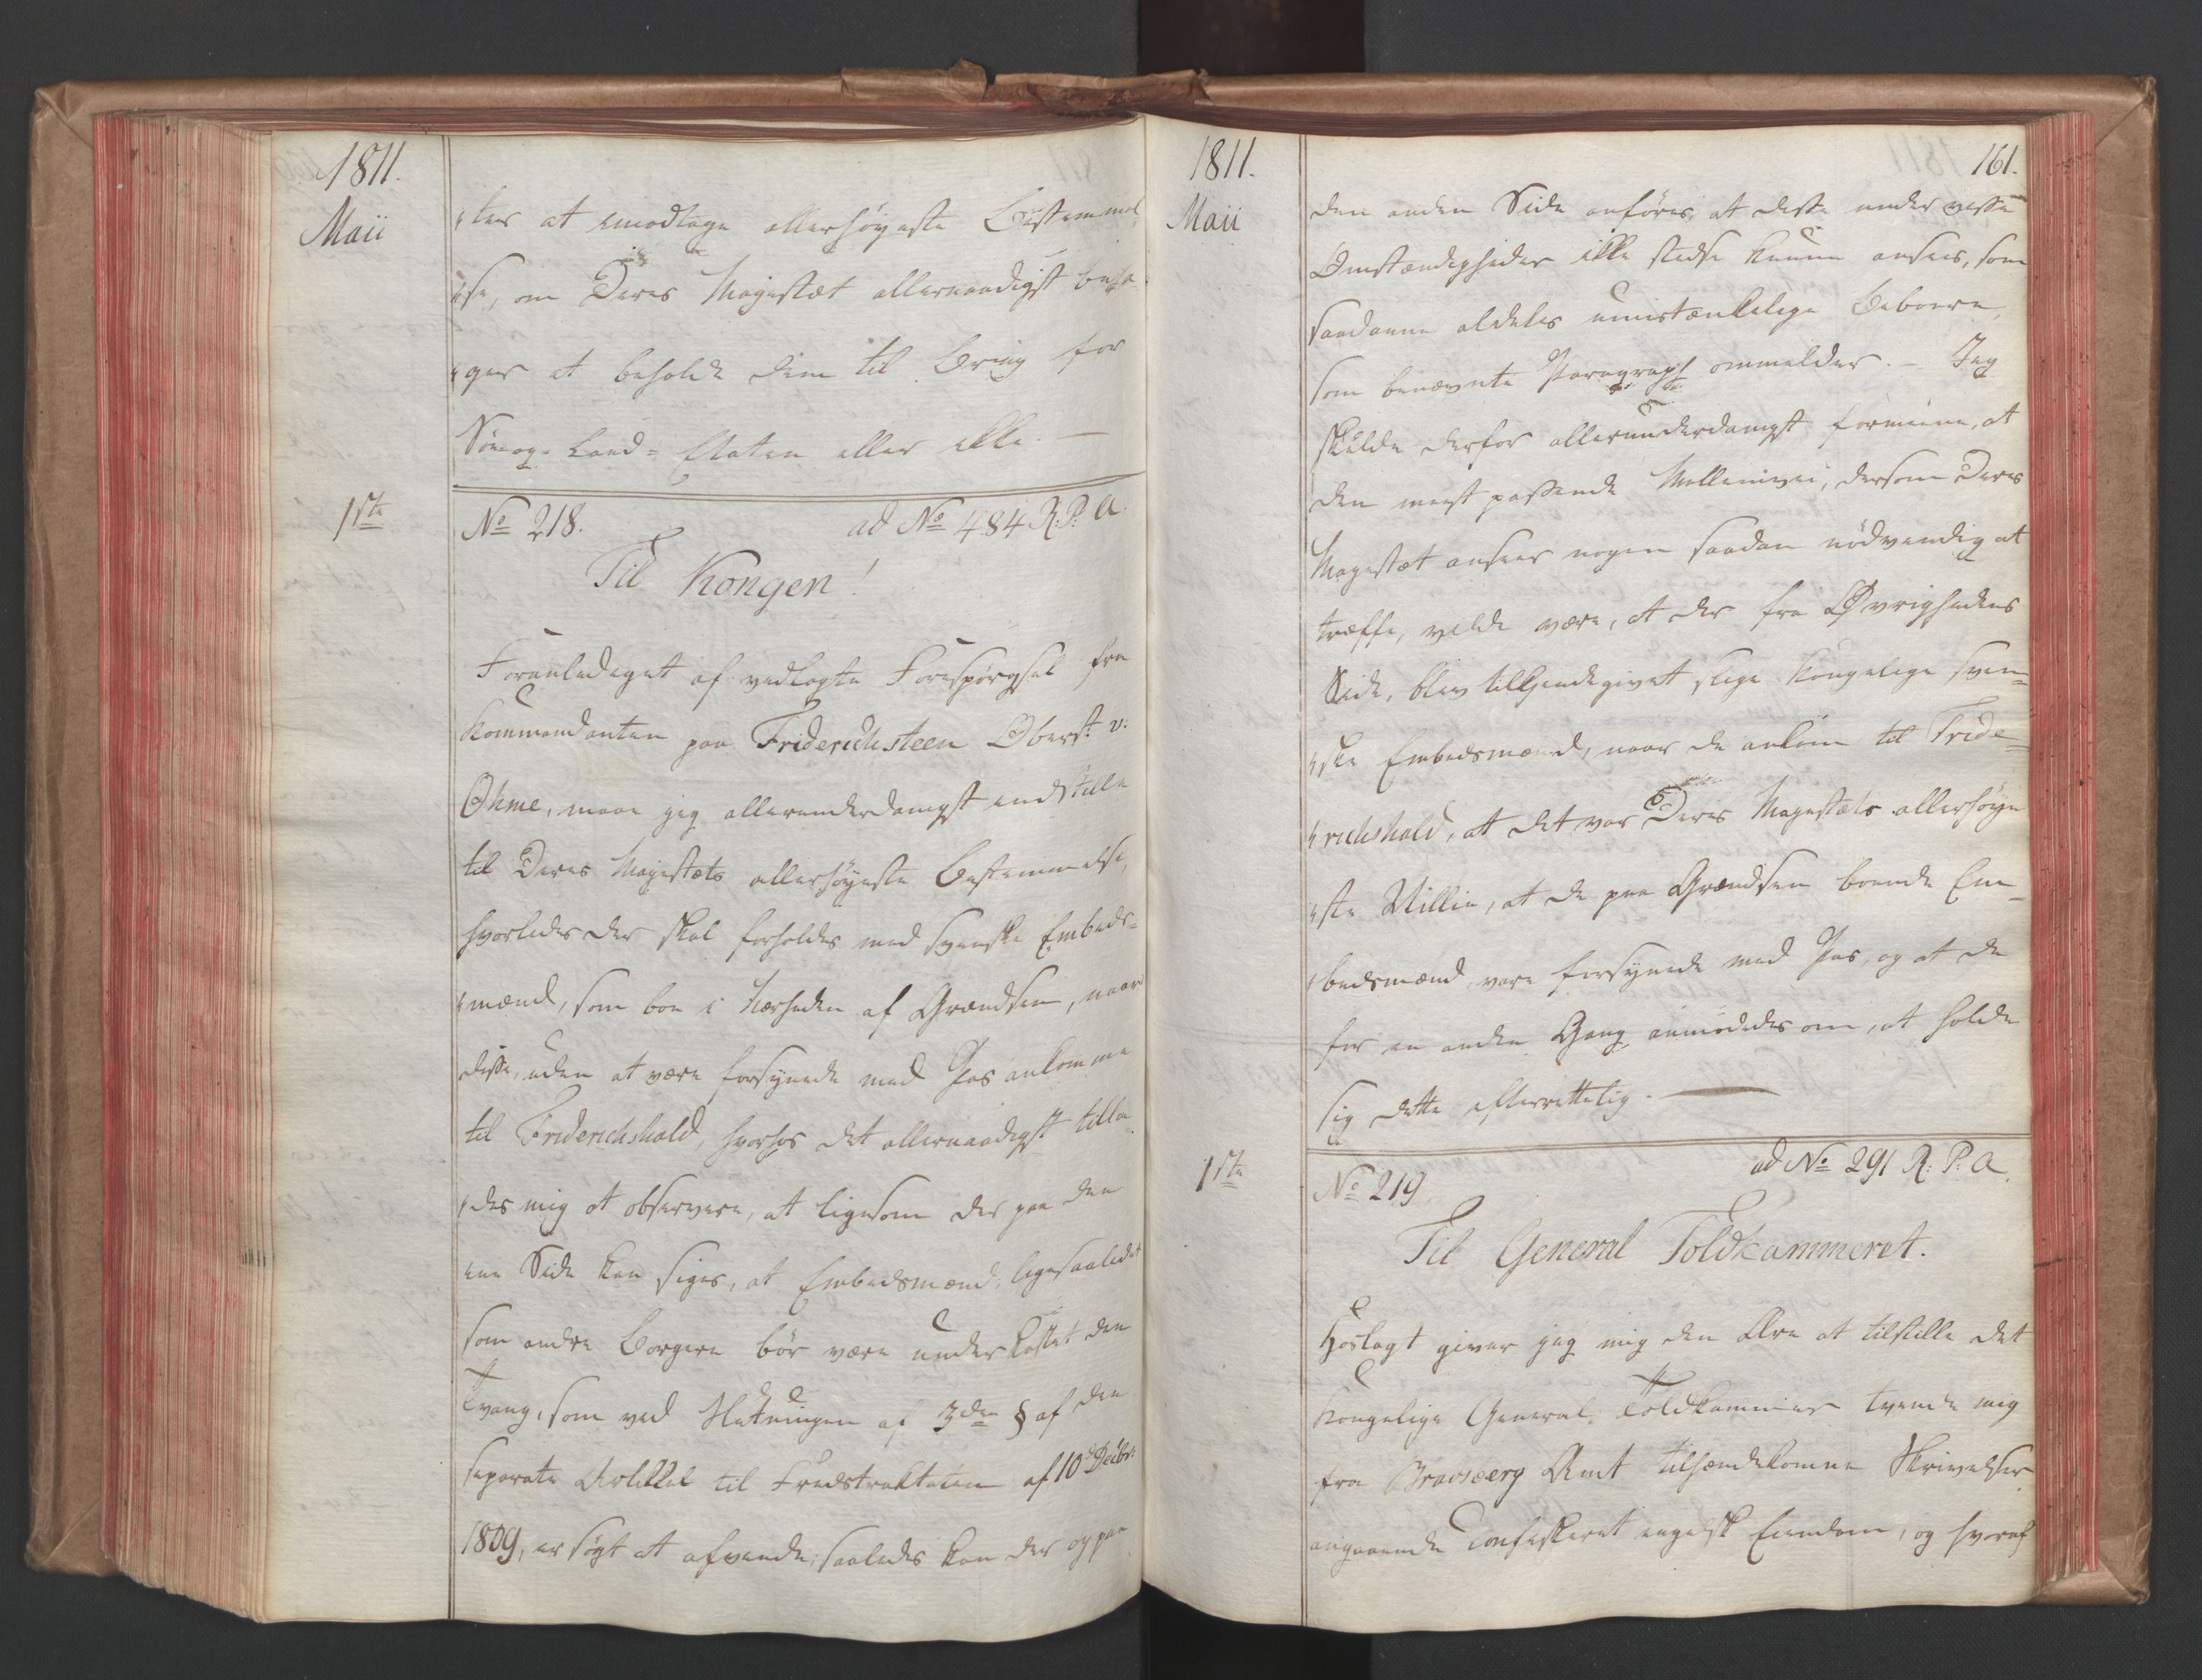 1811.
Maii
"ter at imodtage allerhøyeste Bestemmel
"se, om Deres Majestæt allernaadigst beha
"ger at beholde dem til Brug for
Søe- og Land-Etaten eller ikke. —
1ste
No 218.
ad No 484 R: P: A.
Til Kongen!
Foranlediget af vedlagte Forespørgsel fra
Kommandanten paa Friderichsteen Oberst v:
Ohme, maae jeg allerunderdanigst indstille
til Deres Majestæts allerhøyeste Bestemmelse,
hvorledes der skal forholdes med svenske Embeds-
"mænd, som boe i Nærheden af Grændsen, naar
disse, uden at være forsynede med Pas ankomme
til Friderichshald, hvorhos det allernaadigst tilla-
"des mig at observere, at ligesom der paa den
ene Side kan siges, at Embedsmænd, ligesaaledes
som andre Borgere bør være underkastet den
Tvang, som ved Slutningen af 3die § af den
separate Artikkel til Fredstraktaten af 10 Decbr:
1809, er søgt at afvende; saaledes kan der og paa
1811.
161.
Maii
den anden Side anføres, at disse under visse
Omstændigheder ikke stedse kunne ansees, som
saadanne aldeles umistænkelige Beboere,
som benævnte Paragraph ommelder. — Jeg
skulde derfor allerunderdanigst formene, at
den meest passende Mellemvei, dersom Deres
Majestæt ansaae nogen saadan nødvendig at
træffe, vilde være, at der fra Øvrighedens
Side, blev tilkjendegivet slige Kongelige sven-
"ske Embedsmænd, naar de ankom til Fride-
"richshald, at det var Deres Majestæts allerhøye
"ste Villie, at de paa Grændsen boende Em-
"bedsmænd vare forsynede med Pas, og at de
for en anden Gang anmodedes om, at holde
sig dette efterrettelig. —
1ste
No 219.
ad No 291 R: P: A.
Til General Toldkammeret.
Hoslagt giver jeg mig den Ære at tilstille det
Kongelige General Toldkammer tvende mig
fra Bratsberg Amt tilhændekomne Skrivelser
angaaende confiskeret engelsk Eiendom, og hvoraf